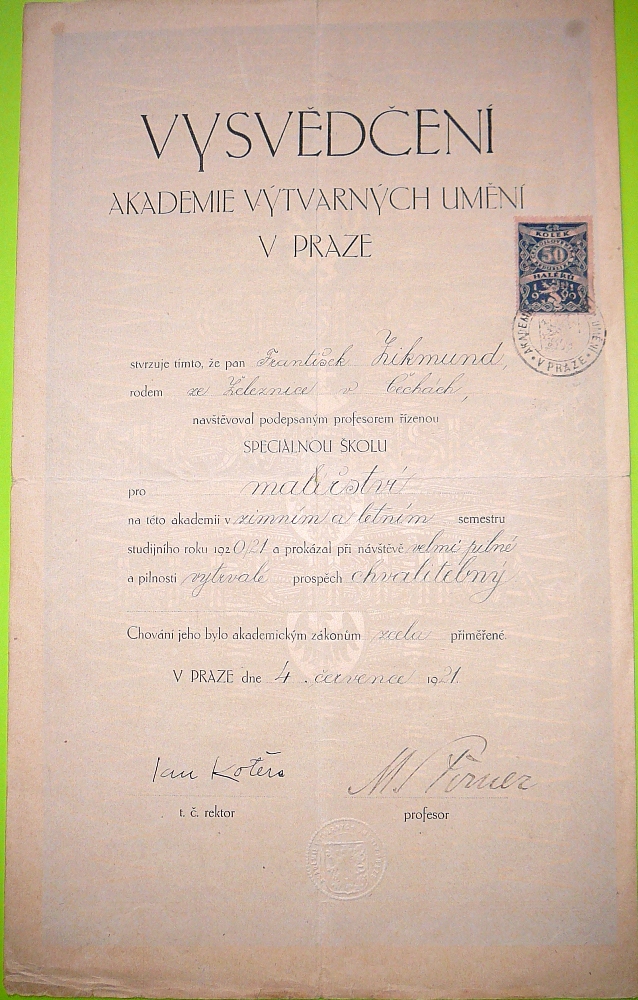 VYSVĚDČENÍ
AKADEMIE VÝTVARNÝCH UMĚNÍ
V PRAZE
KOLEK
50
HALÉŘŮ
1919
V PRAZE
stvrzuje tímto, že pan František Zikmund,
rodem ze Železnice v Čechách,
navštěvoval podepsaným profesorem řízenou
SPECIÁLNOU ŠKOLU
pro malířství
na této akademii v zimním a letním semestru
studijního roku 1920/21 a prokázal při návštěvě velmi pilné
a pilnosti vytrvalé prospěch chvalitebný
Chování jeho bylo akademickým zákonům zcela přiměřené.
V PRAZE dne 4. července 1921.
Jan Kotěra
M. Pirner
t. č. rektor
profesor